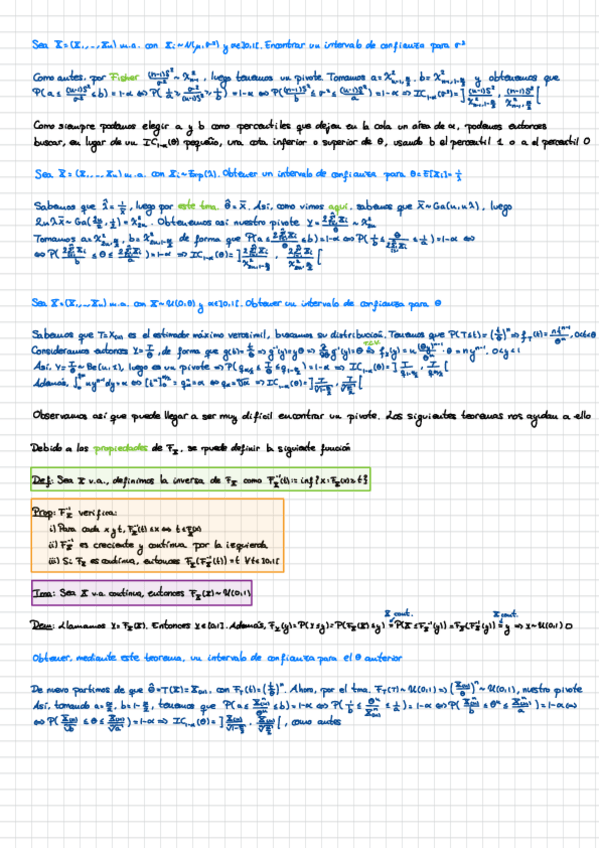 Sea X=(X₁,...,Xₙ) m.a. con Xᵢ~N(μ,σ²) y α∈]0,1[. Encontrar un intervalo de confianza para σ²
Como antes, por Fisher (n-1)S²/σ² ~ χ²ₙ₋₁, luego tenemos un pivote. Tomamos a=χ²ₙ₋₁,α/2, b=χ²ₙ₋₁,₁₋α/2 y obtenemos que
P(a≤(n-1)S²/σ²≤b)=1-α ⇔ P(1/a≥σ²/(n-1)S²≥1/b)=1-α ⇔ P((n-1)S²/b≤σ²≤(n-1)S²/a)=1-α ⇒ IC₁₋α(σ²)=](n-1)S²/χ²ₙ₋₁,₁₋α/2, (n-1)S²/χ²ₙ₋₁,α/2[
Como siempre podemos elegir a y b como percentiles que dejen en la cola un área de α, podemos entonces
buscar, en lugar de un IC₁₋α(θ) pequeño, una cota inferior o superior de θ, usando b el percentil 1 o a el percentil 0
Sea X=(X₁,...,Xₙ) m.a. con Xᵢ~Exp(λ). Obtener un intervalo de confianza para θ=E[Xᵢ]=1/λ
Sabemos que λ̂=1/X̄, luego por este tma. θ̂=X̄. Así, como vimos aquí, sabemos que X̄~Ga(n,nλ), luego
2nλX̄~Ga(2n/2,1/2)=χ²₂ₙ. Obtenemos así nuestro pivote Y=2ΣXᵢ/θ~χ²₂ₙ
Tomamos a=χ²₂ₙ,α/2, b=χ²₂ₙ,₁₋α/2 de forma que P(a≤2ΣXᵢ/θ≤b)=1-α ⇔ P(1/b≤θ/2ΣXᵢ≤1/a)=1-α ⇔
⇔ P(2ΣXᵢ/b≤θ≤2ΣXᵢ/a)=1-α ⇒ IC₁₋α(θ)=]2ΣXᵢ/χ²₂ₙ,₁₋α/2, 2ΣXᵢ/χ²₂ₙ,α/2[
Sea X=(X₁,...,Xₙ) m.a. con X~U(0,θ) y α∈]0,1[. Obtener un intervalo de confianza para θ
Sabemos que T=X₍ₙ₎ es el estimador máximo verosímil, buscamos su distribución. Tenemos que P(T≤t)=(t/θ)ⁿ ⇒ f_T(t)=ntⁿ⁻¹/θⁿ, 0<t<θ
Consideramos entonces Y=T/θ, de forma que g(t)=t/θ ⇒ g⁻¹(y)=yθ ⇒ g⁻¹(y)=θ ⇒ f_Y(y)=n(θy)ⁿ⁻¹/θⁿ·θ=nyⁿ⁻¹, 0<y<1
Así, Y=T/θ~Be(n,1), luego es un pivote ⇒ P(qα/2≤T/θ≤q₁₋α/2)=1-α ⇒ IC₁₋α(θ)=]T/q₁₋α/2, T/qα/2[
Observamos así que puede llegar a ser muy difícil encontrar un pivote. Los siguientes teoremas nos ayudan a ello
Debido a las propiedades de F_X, se puede definir la siguiente función
Def: Sea X v.a., definimos la inversa de F_X como F_X⁻¹(t):=inf{x:F_X(x)≥t}
Prop: F_X⁻¹ verifica:
i) Para cada x y t, F_X⁻¹(t)≤x ⇔ t≤F_X(x)
ii) F_X⁻¹ es creciente y continua por la izquierda
iii) Si F_X es continua, entonces F_X(F_X⁻¹(t))=t ∀t∈]0,1[
Tma: Sea X v.a. continua, entonces F_X(X)~U(0,1)
X cont. X cont.
Dem: Llamamos Y=F_X(X). Entonces Y∈[0,1]. Además, F_Y(y)=P(Y≤y)=P(F_X(X)≤y)=P(X≤F_X⁻¹(y))=F_X(F_X⁻¹(y))=y ⇒ Y~U(0,1) □
Obtener, mediante este teorema, un intervalo de confianza para el θ anterior
De nuevo partimos de que θ̂=T(X)=X₍ₙ₎, con F_T(t)=(t/θ)ⁿ. Ahora, por el tma. F_T(T)~U(0,1) ⇒ (X₍ₙ₎/θ)ⁿ~U(0,1), nuestro pivote
Así, tomando a=α/2, b=1-α/2, tenemos que P(a≤X₍ₙ₎ⁿ/θⁿ≤b)=1-α ⇔ P(1/b≤θⁿ/X₍ₙ₎ⁿ≤1/a)=1-α ⇔ P(X₍ₙ₎ⁿ/b≤θⁿ≤X₍ₙ₎ⁿ/a)=1-α ⇔
⇔ P(X₍ₙ₎/ⁿ√b≤θ≤X₍ₙ₎/ⁿ√a)=1-α ⇒ IC₁₋α(θ)=]X₍ₙ₎/ⁿ√(1-α/2), X₍ₙ₎/ⁿ√(α/2)[, como antes